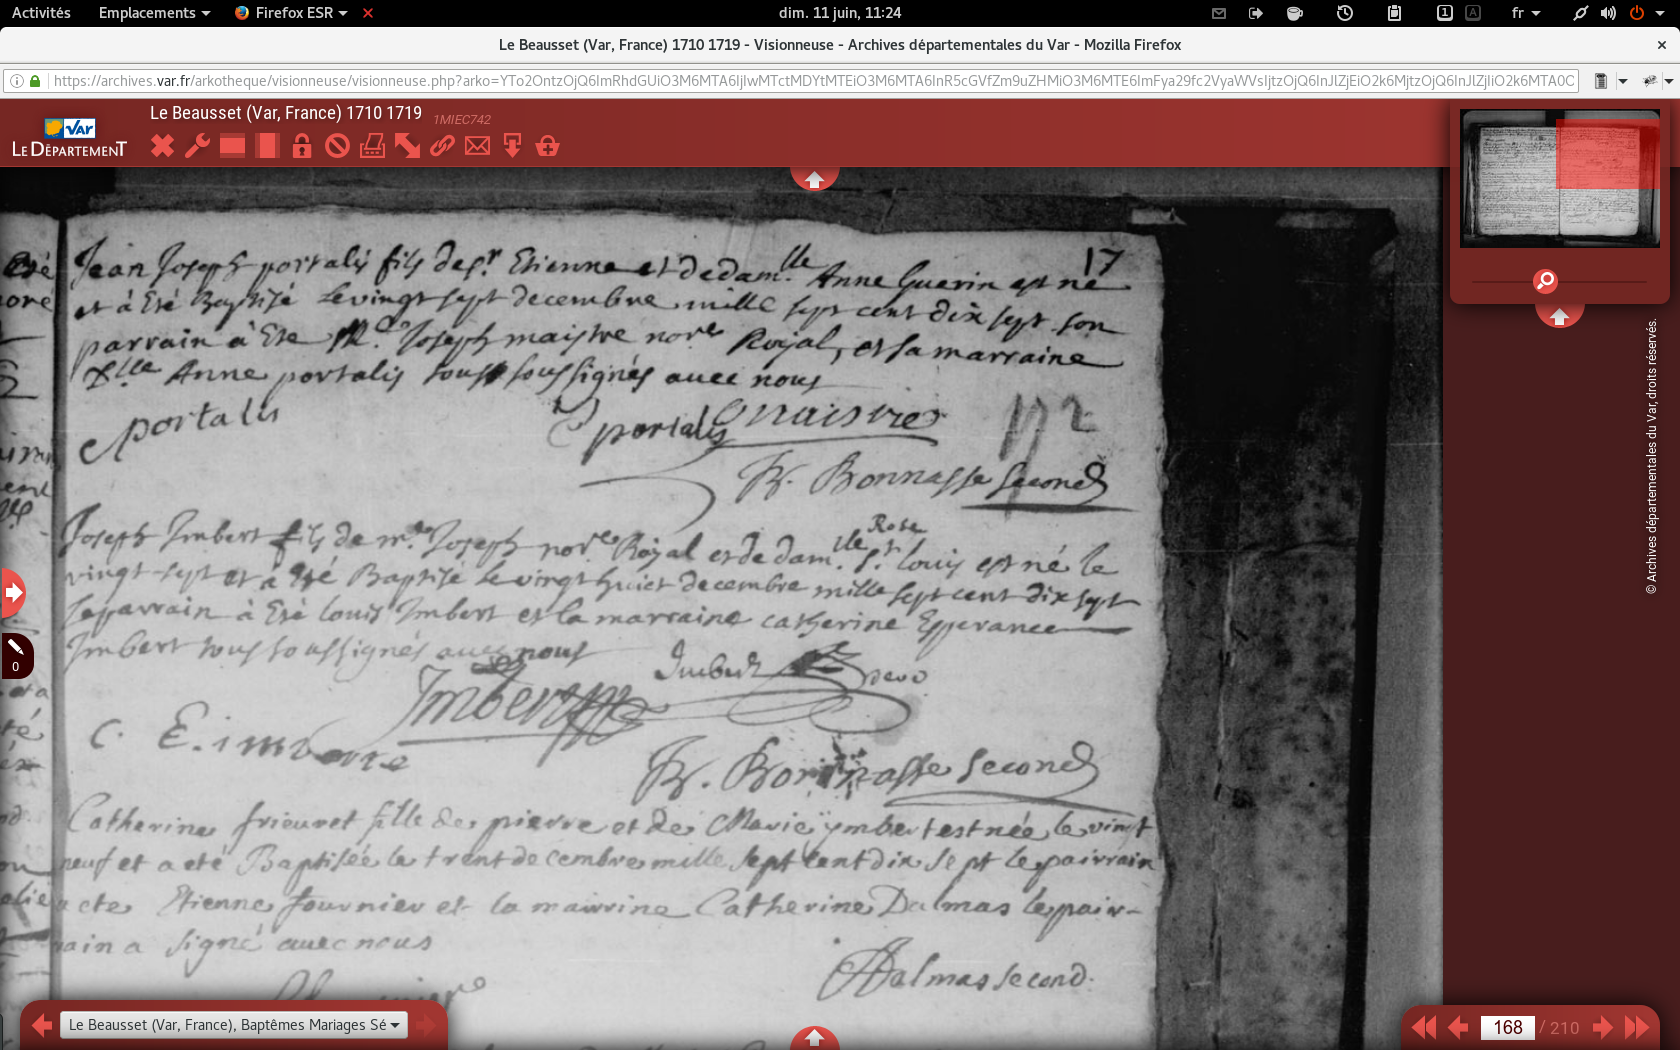 Activités Emplacements Firefox ESR dim. 11 juin, 11:24 1 A fr
Le Beausset (Var, France) 1710 1719 - Visionneuse - Archives départementales du Var - Mozilla Firefox
Le Beausset (Var, France) 1710 1719 1MIEC742
VAR
LE DÉPARTEMENT
17
Jean Joseph portalis fils de sr. Etienne et de dam.lle Anne Guerin est né
et à Eté Baptisé le vingt sept decembre mille sept cent dix sept son
parrain à Ete Me. Joseph maistre nore Royal, et sa marraine
Dlle Anne portalis tous soussignés avec nous
portalis
portalis Maistre
172
Bonnasse second
Rose
Joseph Imbert fils de me. Joseph nore Royal et de dam.lle St. louis est né le
vingt sept et a Eté Baptisé le vingt huict decembre mille sept cent dix sept
le parrain à Eté louis Imbert et la marraine catherine Esperance
Imbert tous soussignés avec nous
Imbert
Imbert
C. E. imberte
Bonnasse second
Catherine frieuret fille de pierre et de Marie ymbert est née le vingt
neuf et a eté Baptisée le trent decembre mille sept cent dix sept le pairrain
a ete Etienne fournier et la mairrine Catherine Dalmas le pair-
rain a signé avec nous
Dalmas second.
© Archives départementales du Var, droits réservés.
0
Le Beausset (Var, France), Baptêmes Mariages Sé
168 / 210